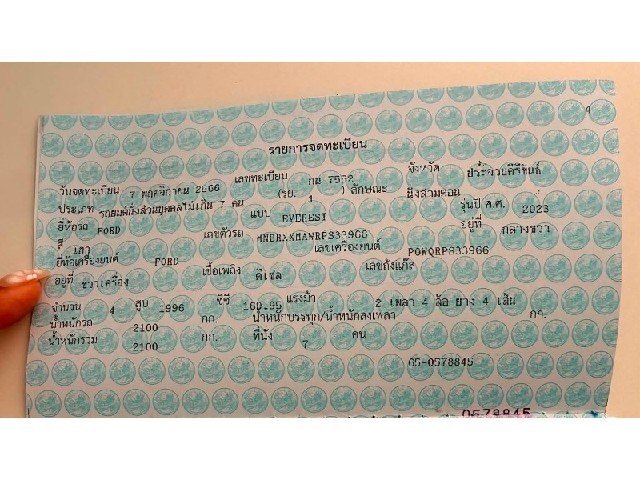 รายการจดทะเบียน
วันจดทะเบียน 7 พฤศจิกายน 2566 เลขทะเบียน กน 7552 จังหวัด ประจวบคีรีขันธ์
ประเภท รถยนต์นั่งส่วนบุคคลไม่เกิน 7 คน (รย. 1 ) ลักษณะ นั่งสามตอน
ยี่ห้อรถ FORD แบบ EVEREST รุ่นปี ค.ศ. 2023
สี เทา เลขตัวรถ อยู่ที่ กลางขวา
ยี่ห้อเครื่องยนต์ FORD เลขเครื่องยนต์ P0WQRPS33966
อยู่ที่ ขวาเครื่อง เชื้อเพลิง ดีเซล เลขถังแก๊ส
จำนวน 4 สูบ 1996 ซีซี แรงม้า 2 เพลา 4 ล้อ ยาง 4 เส้น
น้ำหนักรถ 2100 กก. น้ำหนักบรรทุก/น้ำหนักลงเพลา กก.
น้ำหนักรวม 2100 กก. ที่นั่ง 7 คน
05-0578845
0578845